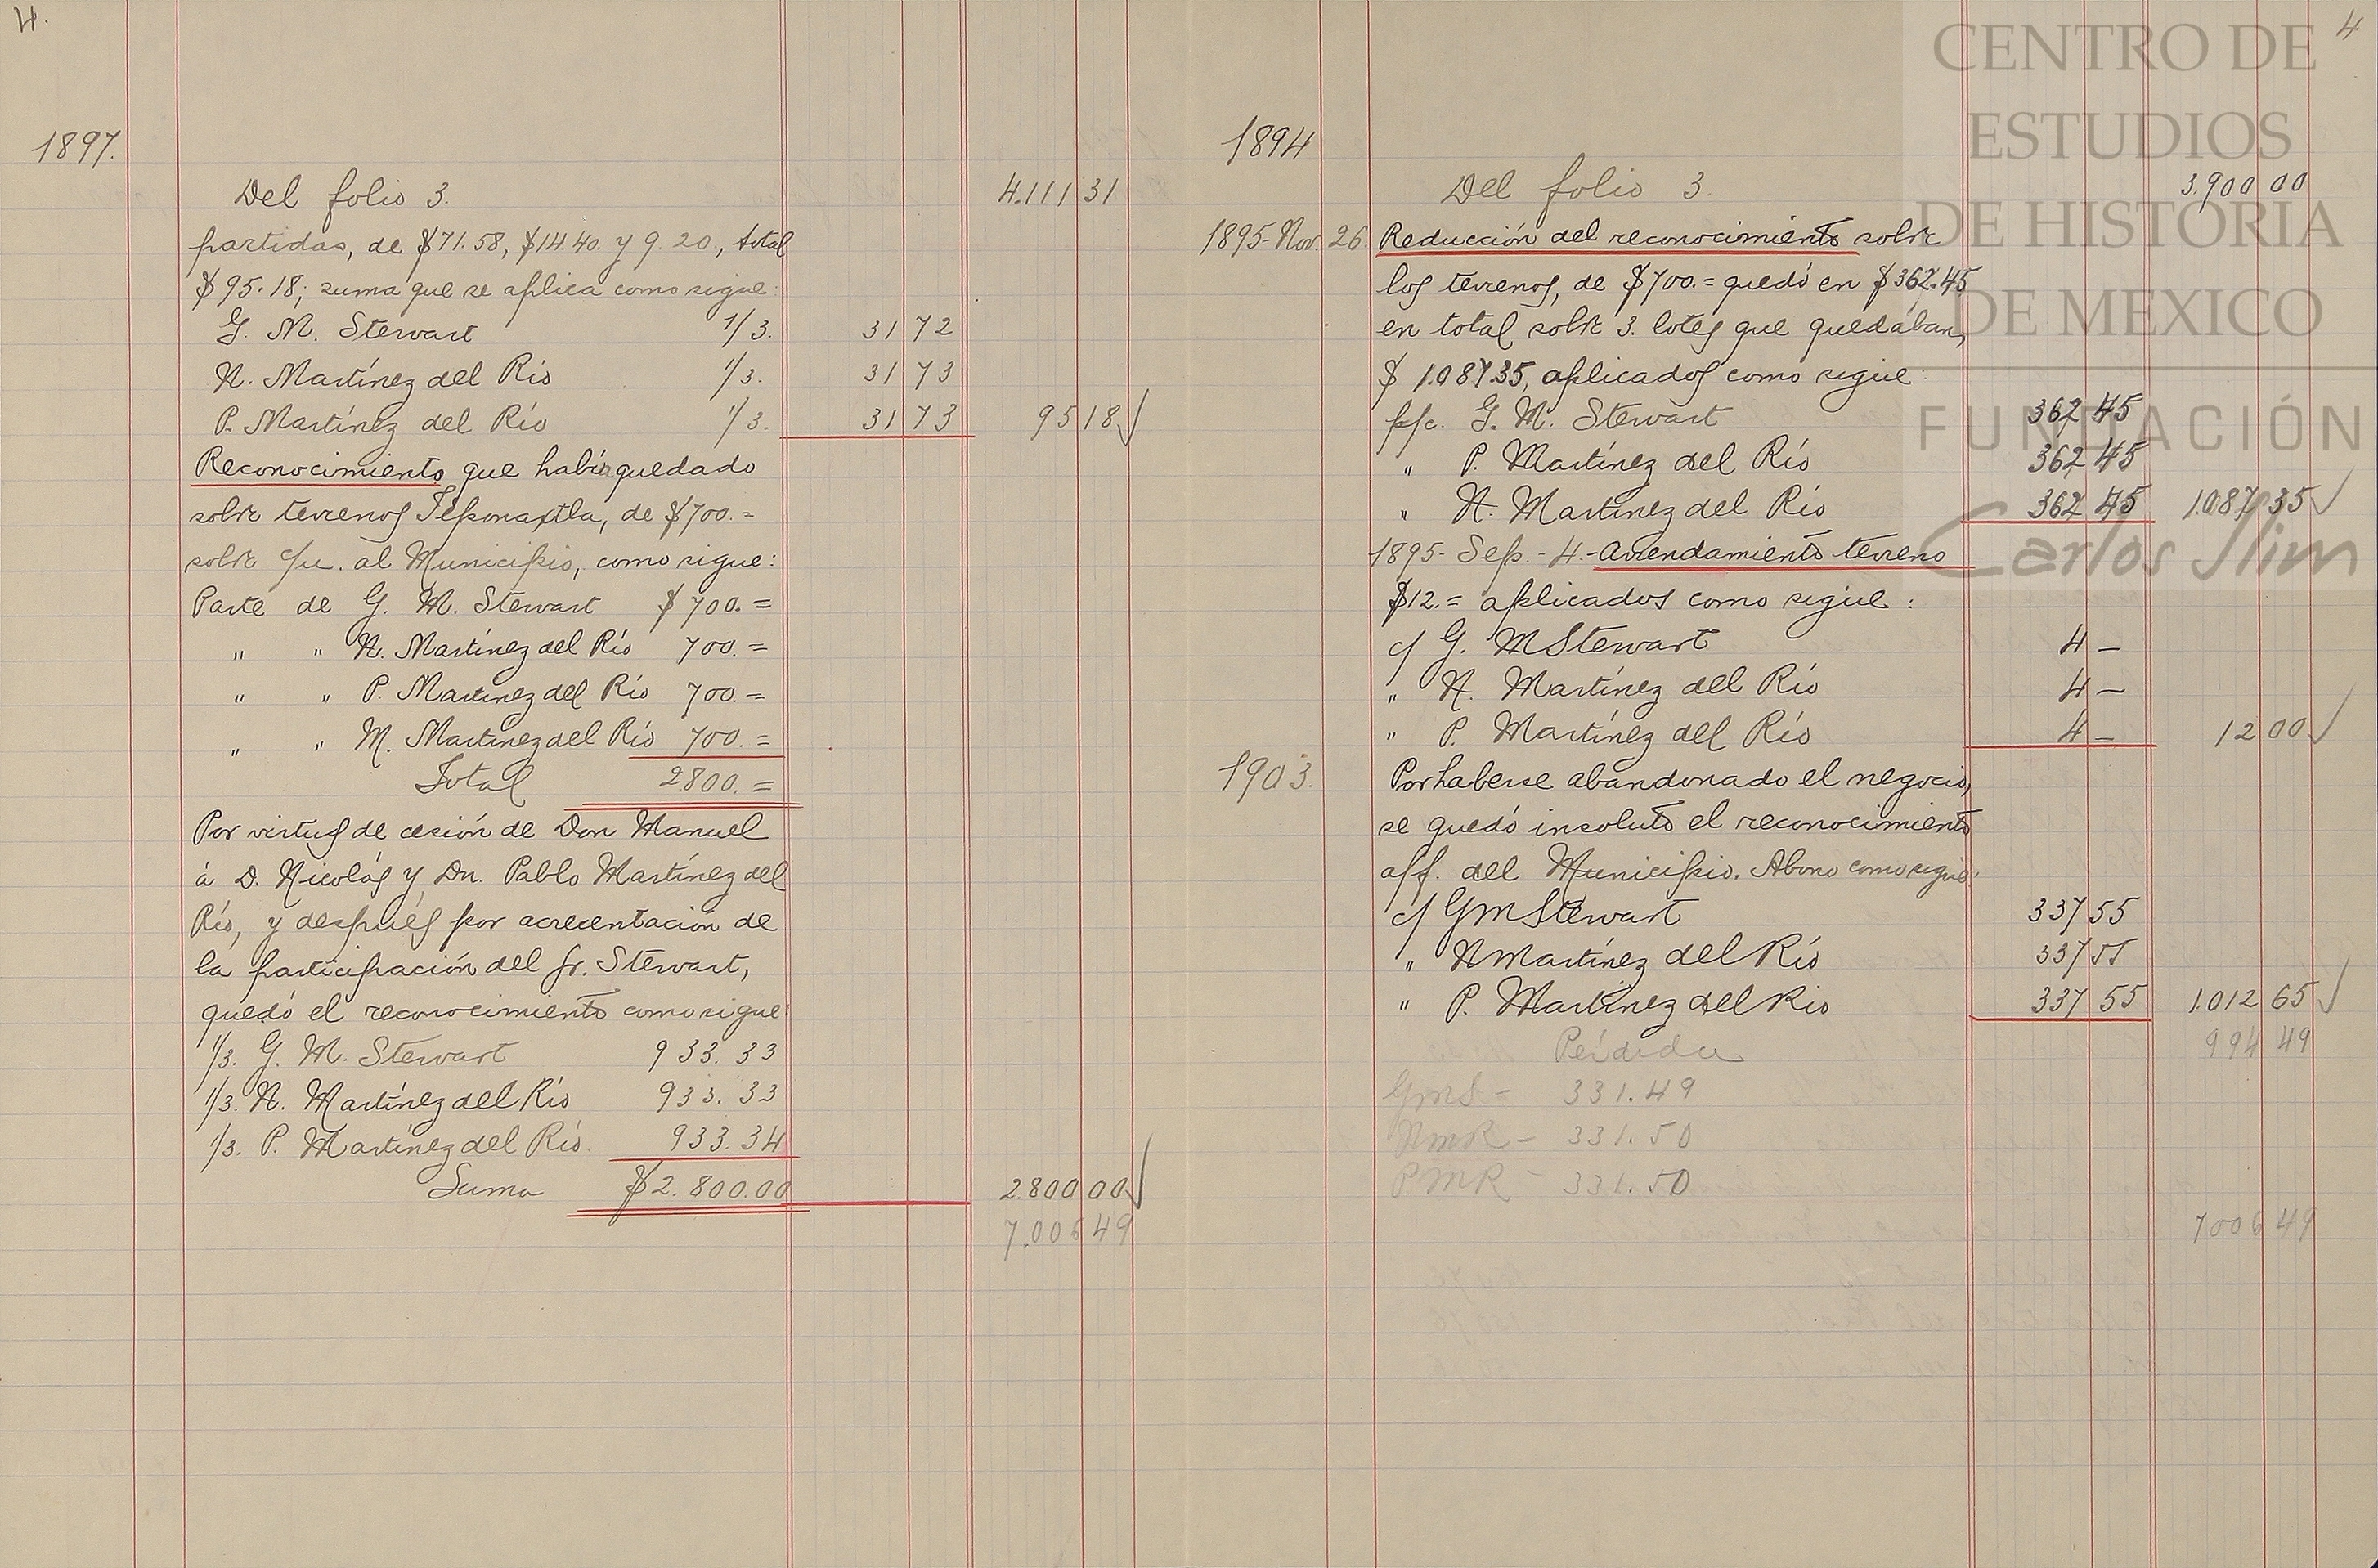 4.
1897.
Del folio 3. 4.111 31
partidas, de $71.58, $14.40. y 9.20., total
$95.18; suma que se aplica como sigue:
G. M. Stewart 1/3. 31 72
N. Martínez del Río 1/3. 31 73
P. Martínez del Río 1/3. 31 73 95 18
Reconocimiento que había quedado
sobre terrenos Teponaxtla, de $700.=
sobre c/u. al Municipio, como sigue:
Parte de G. M. Stewart $700.=
" " N. Martínez del Río 700.=
" " P. Martínez del Río 700.=
" " M. Martínez del Río 700.=
Total 2800.=
Por virtud de cesión de Don Manuel
á D. Nicolás y Dn. Pablo Martínez del
Río, y después por acrecentación de
la participación del Sr. Stewart,
quedó el reconocimiento como sigue:
1/3. G. M. Stewart 933.33
1/3. N. Martínez del Río 933.33
1/3. P. Martínez del Río. 933.34
Suma $2.800.00 2.800 00
7.006 49
4
1894
Del folio 3. 3.900 00
1895-Nov. 26. Reducción del reconocimiento sobre
los terrenos, de $700.= quedó en $362.45
en total sobre 3. lotes que quedaban,
$ 1.087.35, aplicados como sigue:
p/c. G. M. Stewart 362 45
" P. Martínez del Río 362 45
" N. Martínez del Río 362 45 1.087 35
1895- Sep.- 4.- Arrendamiento terreno
$12.= aplicados como sigue:
c/ G. M Stewart 4 —
" N. Martínez del Río 4 —
" P. Martínez del Río 4 — 12 00
1903. Por haberse abandonado el negocio,
se quedó insoluto el reconocimiento
af. del Municipio. Abono como sigue:
c/ G M Stewart 337 55
" N Martínez del Río 337 55
" P. Martínez del Rio 337 55 1.012 65
Pérdida 994 49
GMS = 331.49
NMR - 331.50
PMR - 331.50
7006 49
CENTRO DE
ESTUDIOS
DE HISTORIA
DE MEXICO
FUNDACIÓN
Carlos Slim